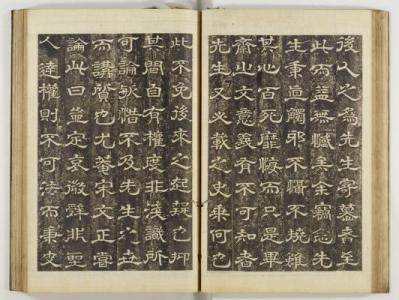 後人之為先生寄慕者至
此而益無憾矣余竊念先
生秉直觸邪不懾不撓雖
其心百死靡悔而只是畢
齋之文意義有不可知者
先生又必載之史乘何也
此不免後來之起疑也抑
其間自有權度非淺識所
可論欤惜不及先生之在
而講質也尤菴宋文正嘗
論此曰蓋定哀微辭非聖
人達權則不可法而秉史